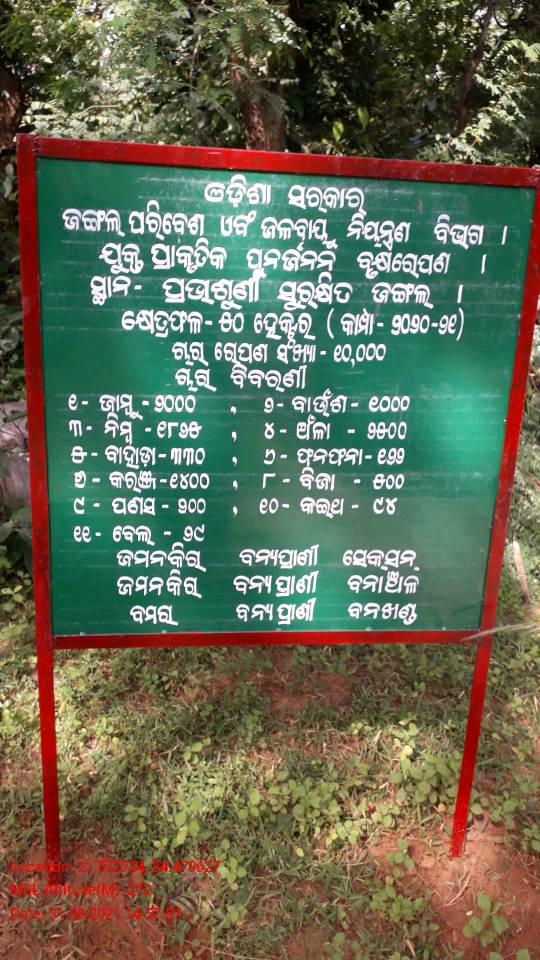 ଓଡ଼ିଶା ସରକାର
ଜଙ୍ଗଲ ପରିବେଶ ଏବଂ ଜଳବାୟୁ ନିୟନ୍ତ୍ରଣ ବିଭାଗ ।
ଯୁକ୍ତ ପ୍ରାକୃତିକ ପୁନର୍ଜନନ ବୃକ୍ଷରୋପଣ ।
ସ୍ଥାନ- ପ୍ରଭାଶୁଣୀ ସୁରକ୍ଷିତ ଜଙ୍ଗଲ ।
କ୍ଷେତ୍ରଫଳ- ୫୦ ହେକ୍ଟର (କାମ୍ପା- ୨୦୨୦-୨୧)
ଚାରା ରୋପଣ ସଂଖ୍ୟା- ୧୦,୦୦୦
ଚାରା ବିବରଣୀ
୧- ଜାମୁ -୨୦୦୦ , ୨- ବାଉଁଶ - ୧୦୦୦
୩ - ନିମ୍ବ - ୧୮୨୫ , ୪ - ଅଁଳା - ୨୫୦୦
୫ - ବାହାଡା-୩୩୦ , ୬ - ଫନଫନା-୧୨୨
୭ - କରଞ୍ଜ -୧୪୦୦ , ୮ - ବିଜା - ୫୦୦
୯ - ପଣସ - ୨୦୦ , ୧୦ - କଇଥ - ୯୪
୧୧ - ବେଲ - ୨୯
ଜମନକିରା ବନ୍ୟପ୍ରାଣୀ ସେକ୍ସନ୍
ଜମନକିରା ବନ୍ୟପ୍ରାଣୀ ବନାଞ୍ଚଳ
ବାମରା ବନ୍ୟପ୍ରାଣୀ ବନଖଣ୍ଡ
Location: 21.572754, 84.479627
MSL Altitude(M): 272
Date: 31-08-2021 14:57:51